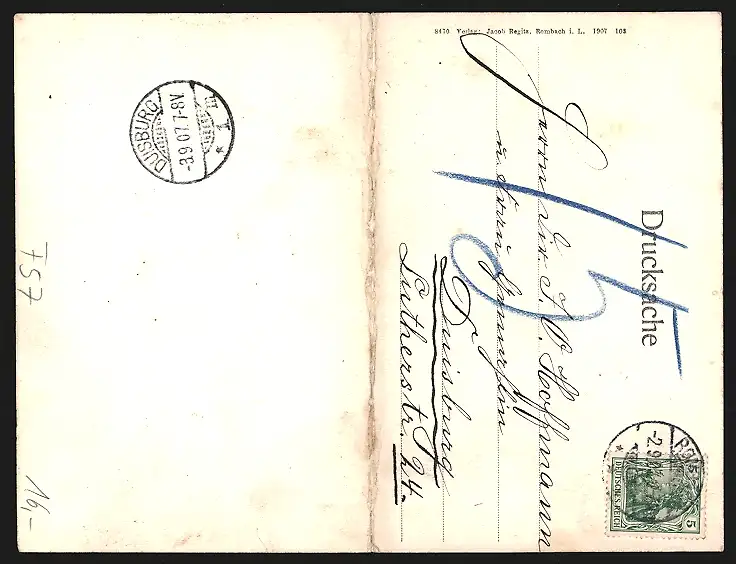 8470 Verlag: Jacob Regitz, Rombach i. L. 1907 103
Drucksache
I. P. Hoffmann
u.
Duisburg
Lutherstr. 24.
15
ROMB
-2.9.07
DEUTSCHES REICH
5
DUISBURG
-3.9.07.7-8V
* 1 III
757
16,-